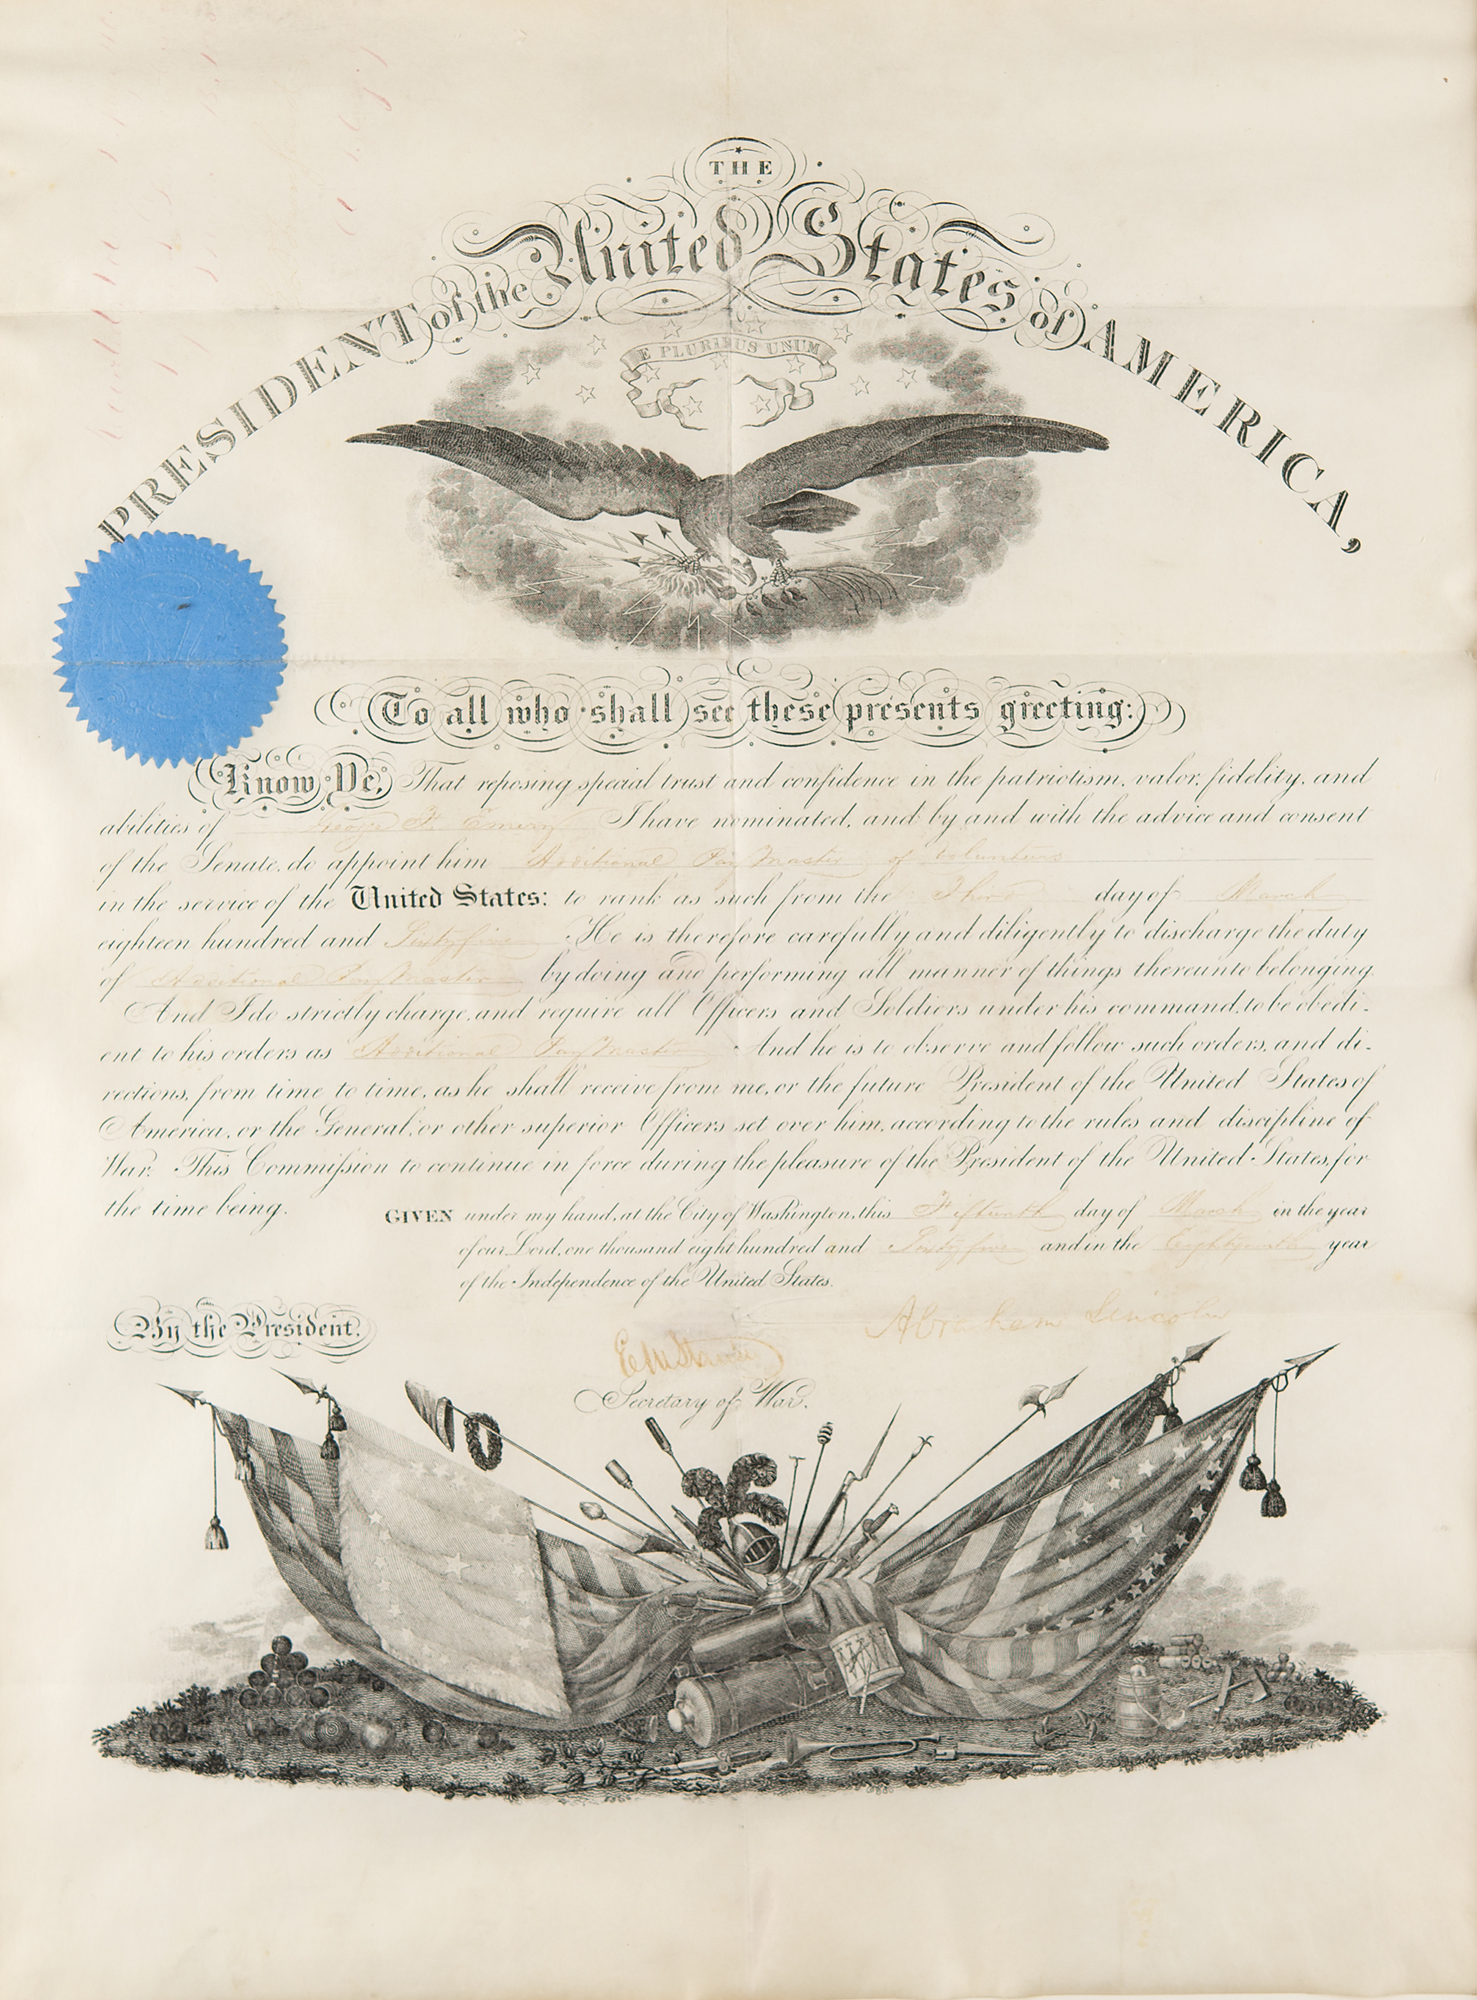 THE
PRESIDENT of the United States of AMERICA,
E PLURIBUS UNUM
To all who shall see these presents greeting:
Know Ye, That reposing special trust and confidence in the patriotism, valor, fidelity, and
abilities of George F. Emery I have nominated, and by and with the advice and consent
of the Senate, do appoint him Additional Paymaster of Volunteers
in the service of the United States: to rank as such from the Third day of March
eighteen hundred and Sixty five . He is therefore carefully and diligently to discharge the duty
of Additional Paymaster by doing and performing all manner of things thereunto belonging.
And I do strictly charge, and require all Officers and Soldiers under his command, to be obedi-
ent to his orders as Additional Paymaster . And he is to observe and follow such orders, and di-
rections, from time to time, as he shall receive from me, or the future President of the United States of
America, or the General, or other superior Officers set over him, according to the rules and discipline of
War. This Commission to continue in force during the pleasure of the President of the United States, for
the time being.
GIVEN under my hand, at the City of Washington, this Fifteenth day of March in the year
of our Lord, one thousand eight hundred and Sixty five and in the Eighty ninth year
of the Independence of the United States.
By the President.
Abraham Lincoln
E M Stanton
Secretary of War.